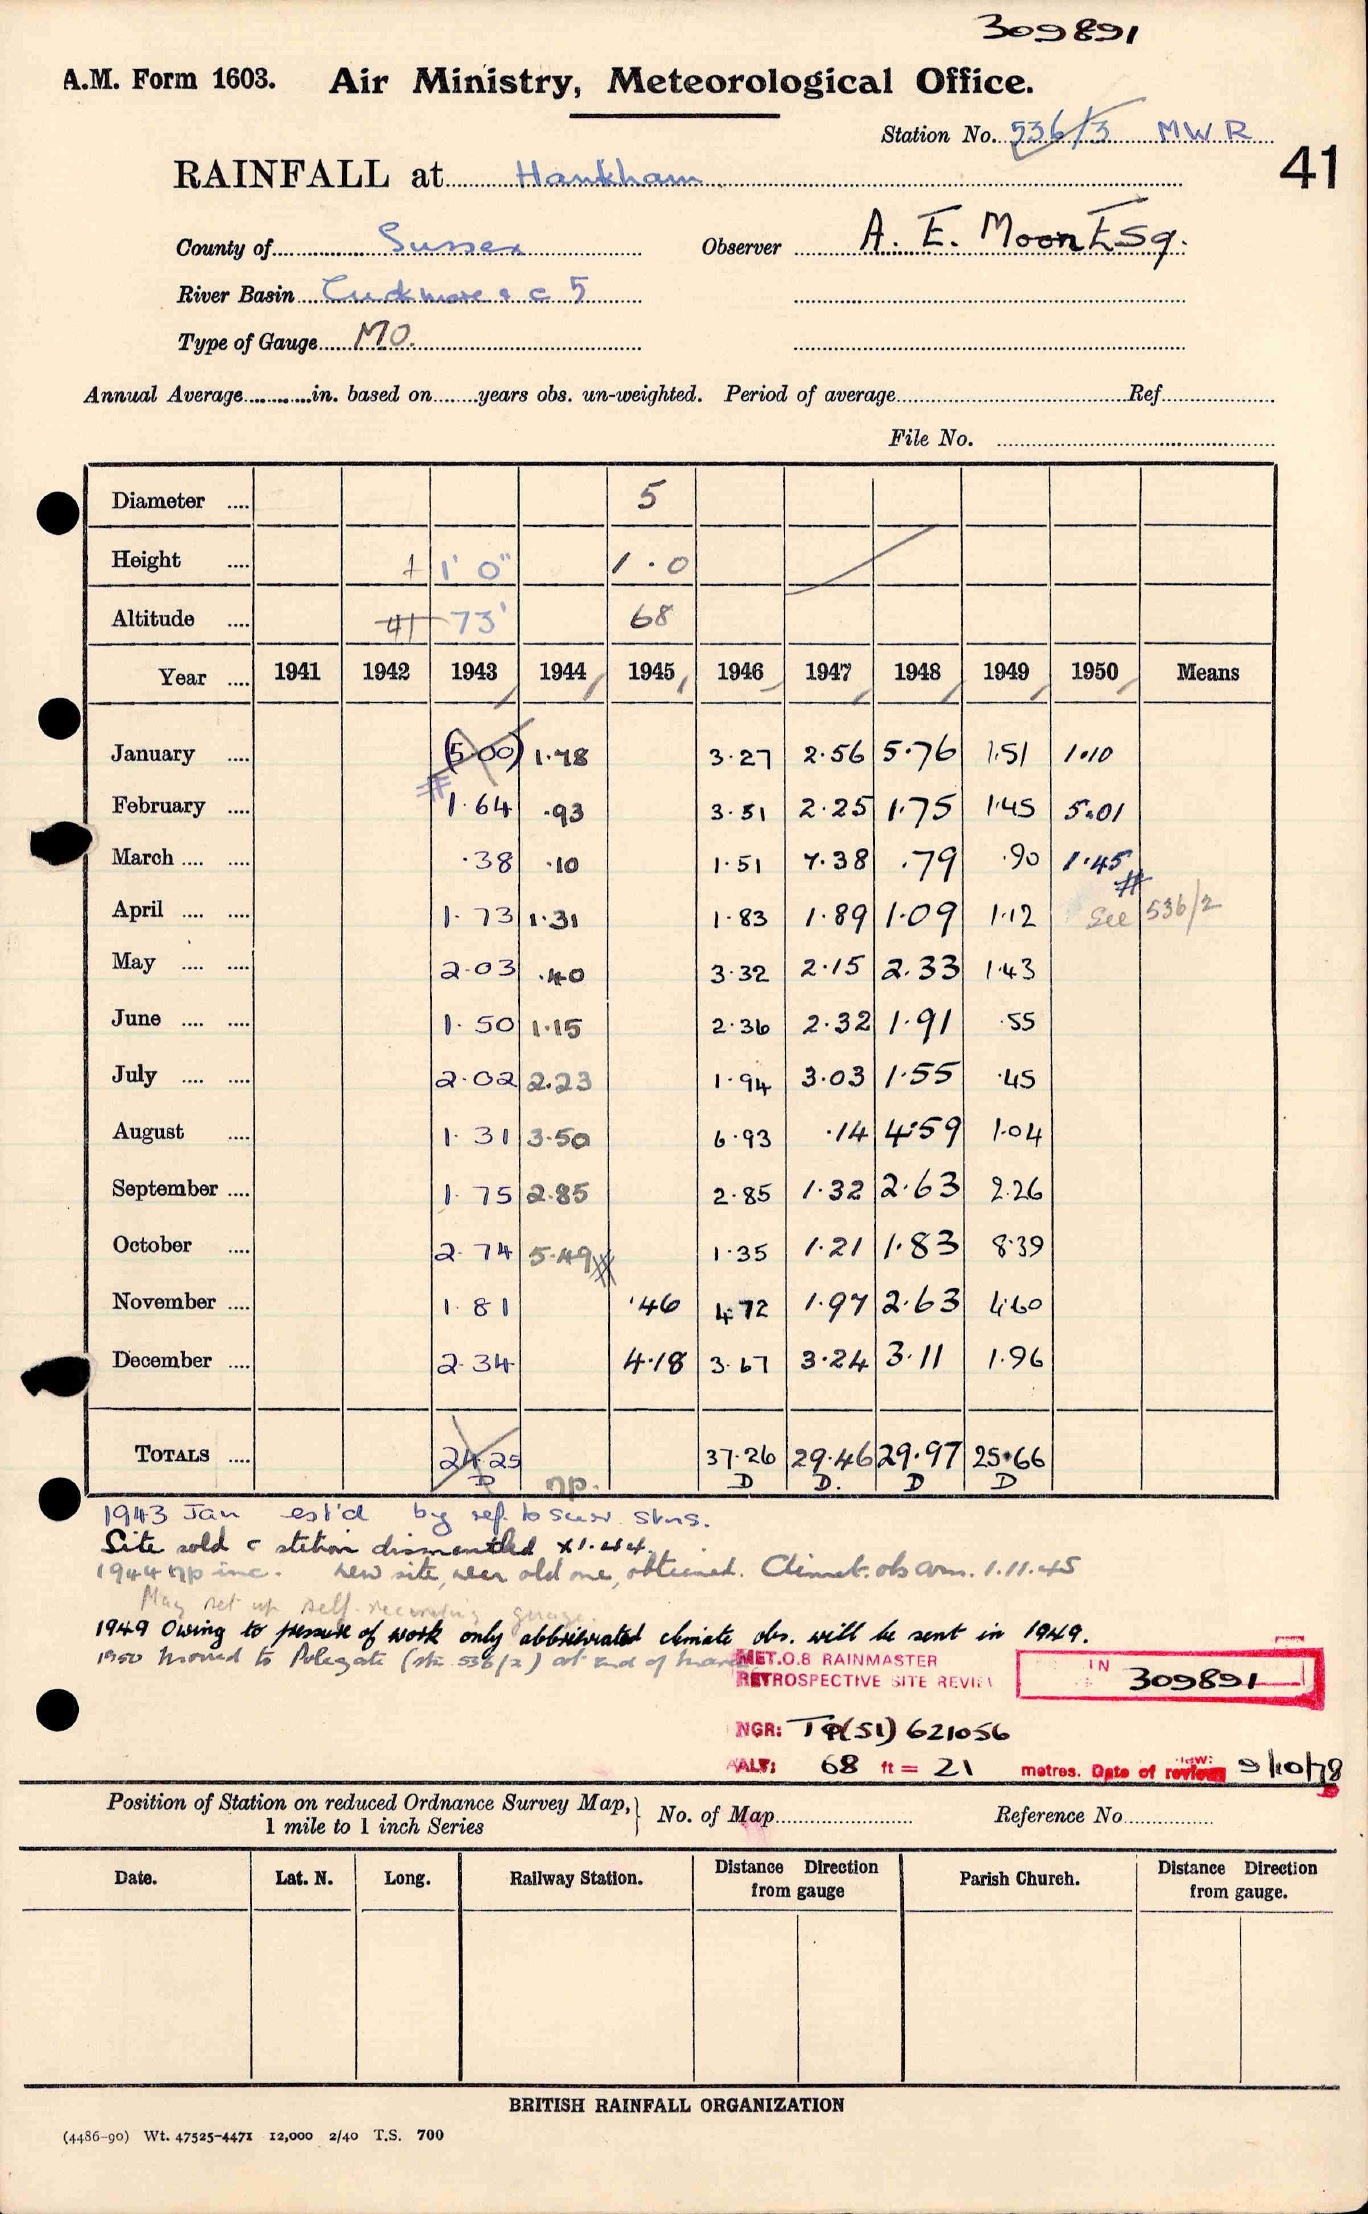 309891
A.M. Form 1603. Air Ministry, Meteorological Office.
Station No. 536/3 MWR
41
RAINFALL at Hankham
County of Sussex Observer A. E. Moon Esq.
River Basin Cuckmere & c 5
Type of Gauge MO.
Annual Average in. based on years obs. un-weighted. Period of average Ref
File No.
Diameter .... 5
Height .... 1 1' 0" 1.0
Altitude .... 41 73' 68
Year .... 1941 1942 1943 1944 1945 1946 1947 1948 1949 1950 Means
January .... (5.00) 1.78 3.27 2.56 5.76 1.51 1.10
February .... 1.64 .93 3.51 2.25 1.75 1.45 5.01
March .... .... .38 .10 1.51 7.38 .79 .90 1.45
April .... .... 1.73 1.31 1.83 1.89 1.09 1.12 See 536/2
May .... .... 2.03 .40 3.32 2.15 2.33 1.43
June .... .... 1.50 1.15 2.36 2.32 1.91 .55
July .... .... 2.02 2.23 1.94 3.03 1.55 .45
August .... 1.31 3.50 6.93 .14 4.59 1.04
September .... 1.75 2.85 2.85 1.32 2.63 2.26
October .... 2.74 5.49 1.35 1.21 1.83 8.39
November .... 1.81 .46 4.72 1.97 2.63 4.60
December .... 2.34 4.18 3.67 3.24 3.11 1.96
TOTALS .... 24.25 37.26 29.46 29.97 25.66
D np. D D. D D
1943 Jan est'd by ref. to surr. stns.
Site sold & station dismantled XI.44.
1944 np inc. New site, near old one, obtained. Climat. obs com. 1.11.45
May set up self-recording guage.
1949 Owing to pressure of work only abbreviated climate obs. will be sent in 1949.
1950 Moved to Polegate (stn 536/2) at end of March
MET.O.8 RAINMASTER
RETROSPECTIVE SITE REVIEW
IN 309891
NGR: TQ(51) 621056
ALT: 68 ft = 21 metres. Date of review: 9/10/78
Position of Station on reduced Ordnance Survey Map,
1 mile to 1 inch Series
No. of Map Reference No
Date. Lat. N. Long. Railway Station. Distance Direction from gauge Parish Church. Distance Direction from gauge.
BRITISH RAINFALL ORGANIZATION
(4486-90) Wt. 47525-4471 12,000 2/40 T.S. 700